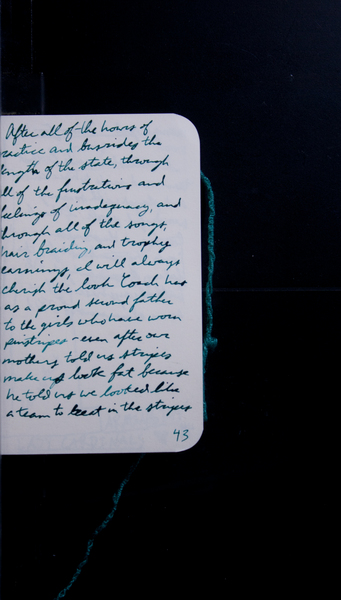 After all of the hours of
ractice and bussides the
length of the state, through
ll of the frustrations and
eelings of inadequacy, and
hrough all of the songs,
hair braiding, and trophy
earnings, I will always
cherish the look Coach has
as a proud second father
to the girls who have worn
pinstripes - even after our
mothers told us stripes
make us look fat because
he told us we looked like
a team to beat in the stripes
43